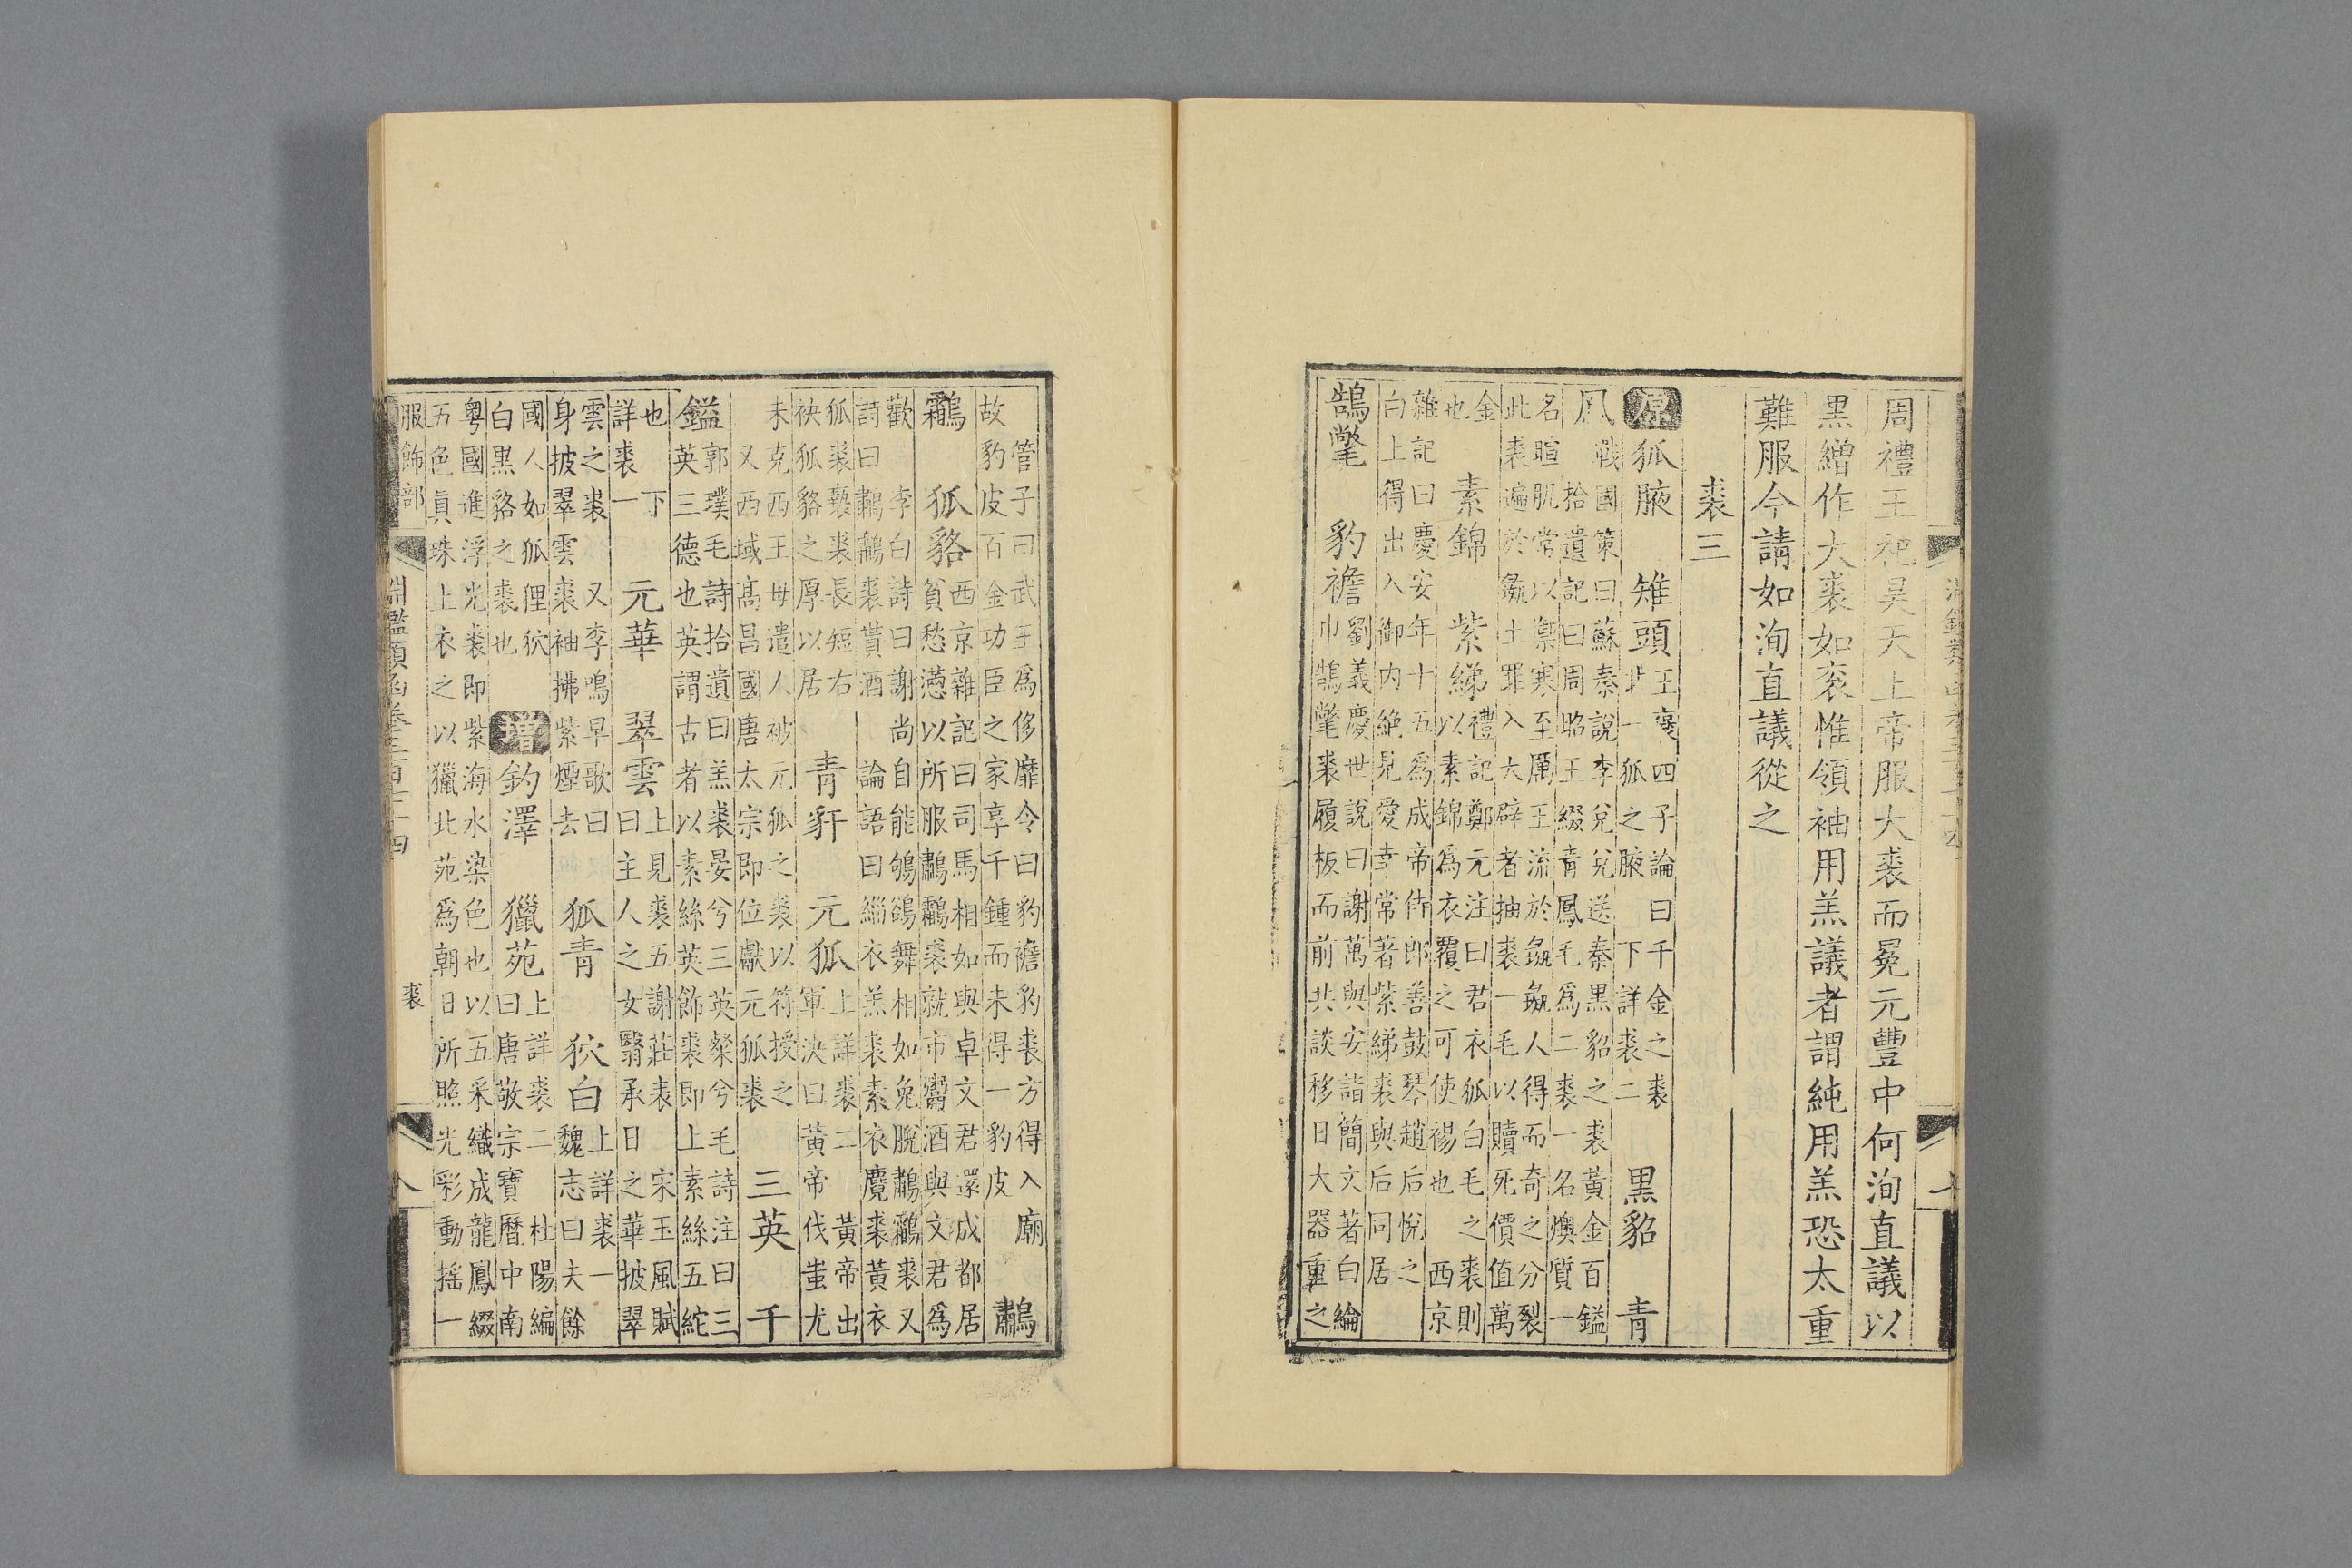 周禮王祀昊天上帝服大裘而冕元豐中何洵直議以
黑繒作大裘如衮惟領袖用羔議者謂純用羔恐太重
難服今請如洵直議從之
裘三
原 狐腋 雉頭
王褒四子論曰千金之裘
非一狐之腋下詳裘二
黑貂 青
鳳
戰國策曰蘇秦說李兌兌送秦黑貂之裘黃金百鎰
拾遺記曰周昭王綴青鳳毛爲二裘一名燠質一
名暄肌常以禦寒至厲王流於彘彘人得而奇之分裂
此裘遍於彘土罪入大辟者抽裘一毛以贖死價值萬
金
也
素錦 紫綈
禮記鄭元注曰君衣狐白毛之裘則
以素錦爲衣覆之可使裼也 西京
雜記曰慶安年十五爲成帝侍郎善鼓琴趙后悅之
白上得出入御內絶見愛幸常著紫綈裘與后同居
鵠氅 豹襜
劉義慶世說曰謝萬與安詣簡文著白綸
巾鵠氅裘履板而前共談移日大器重之
管子曰武王爲侈靡令曰豹襜豹裘方得入廟
故豹皮百金功臣之家享千鍾而未得一豹皮
鷫
鸘 狐貉
西京雜記曰司馬相如與卓文君還成都居
貧愁懣以所服鷫鸘裘就市鬻酒與文君爲
歡 李白詩曰謝尚自能鴝鵒舞相如免脫鷫鸘裘又
詩曰鷫鸘裘貰酒 論語曰緇衣羔裘素衣麑裘黃衣
狐裘褻裘長短右
袂狐貉之厚以居
青豻 元狐
上詳裘二 黃帝出
軍決曰黃帝伐蚩尤
未克西王母遣人披元狐之裘以符授之
又西域高昌國唐太宗即位獻元狐裘
三英 千
鎰
郭璞毛詩拾遺曰羔裘晏兮三英粲兮毛詩注曰三
英三德也英謂古者以素絲英飾裘即上素絲五紽
也 下
詳裘一
元華 翠雲
上見裘五謝莊表 宋玉風賦
曰主人之女翳承日之華披翠
雲之裘 又李鳴早歌曰
身披翠雲裘袖拂紫煙去
狐青 狄白
上詳裘一
魏志曰夫餘
國人如狐狸狖
白黑貉之裘也
增 釣澤 獵苑
上詳裘二 杜陽編
曰唐敬宗寶曆中南
粤國進浮光裘即紫海水染色也以五采織成龍鳳綴
五色眞珠上衣之以獵北苑爲朝日所照光彩動搖一
服飾部 淵鑑類函卷三百七十四 裘 八